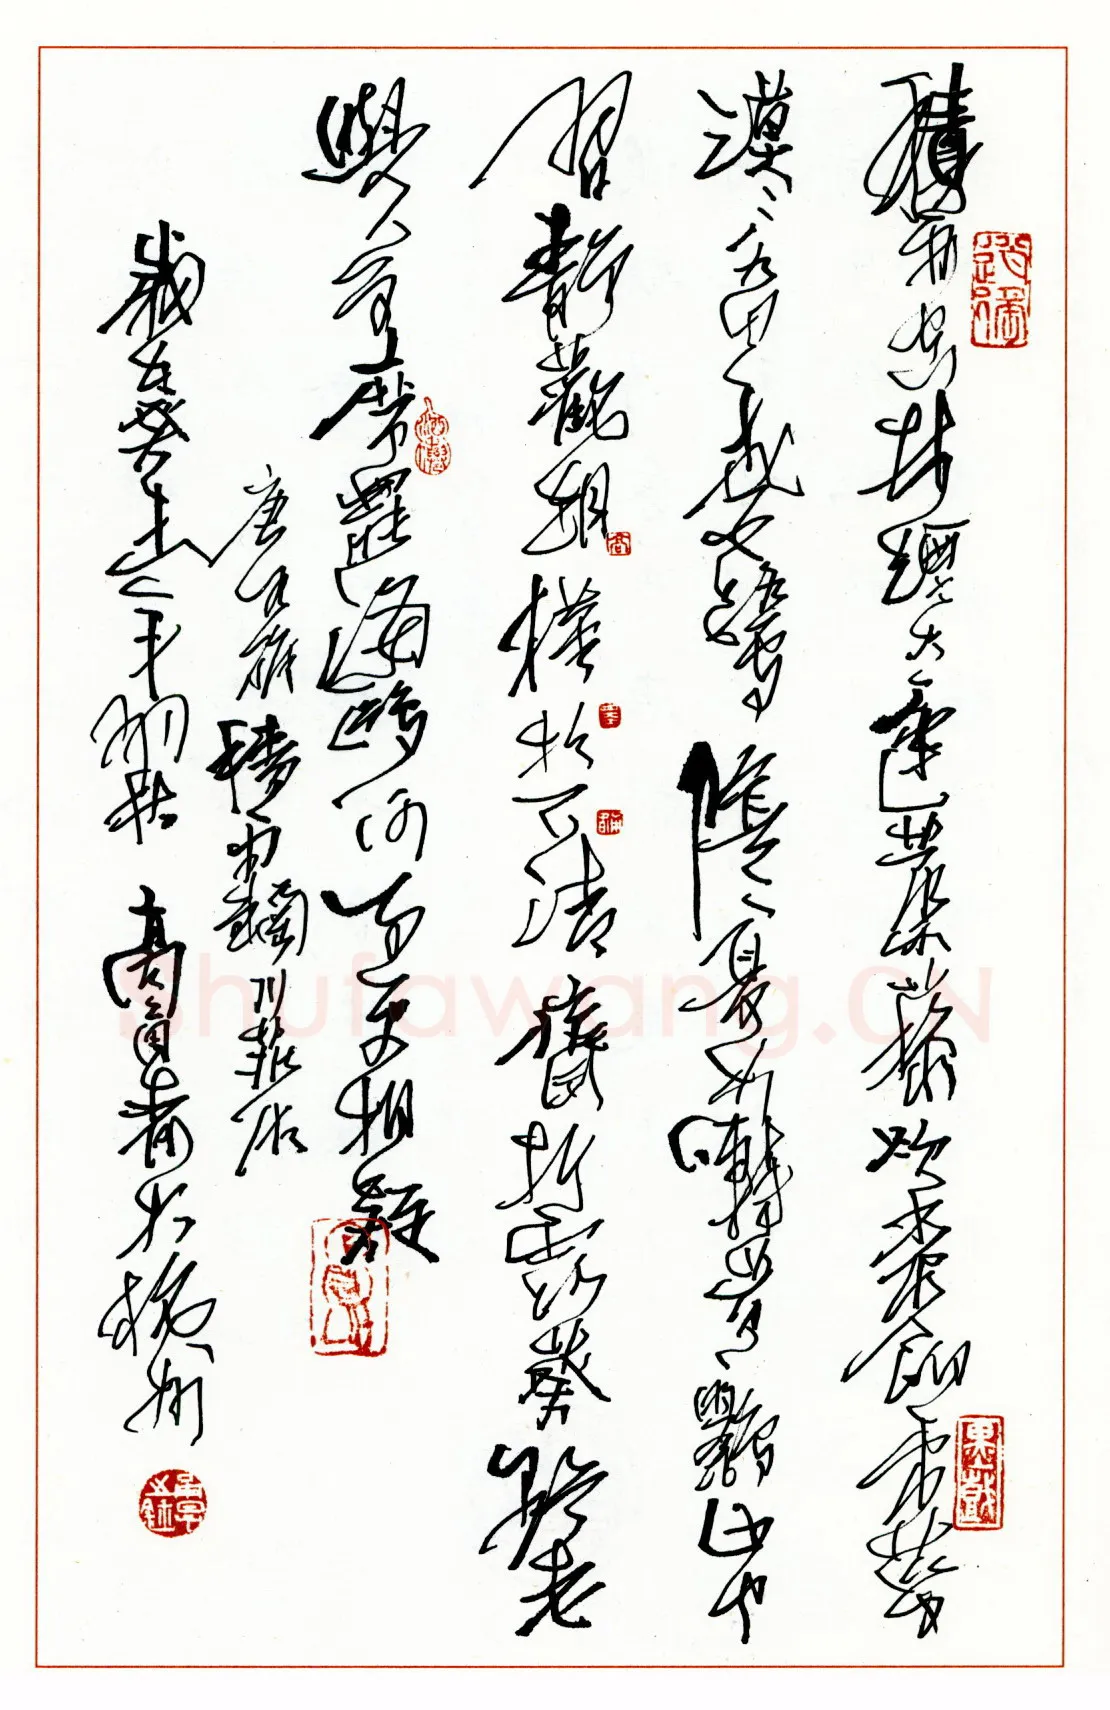 積雨空林煙火遲蒸藜炊黍餉東菑
漠〻水田飛白鷺陰〻夏木囀黃鸝山中
習靜觀朝槿松下清齋折露葵野老
與人爭席罷海鷗何事更相疑
唐王維積雨輞川莊作
歲在癸未年初秋 高書於揚州
Shufawang.CN